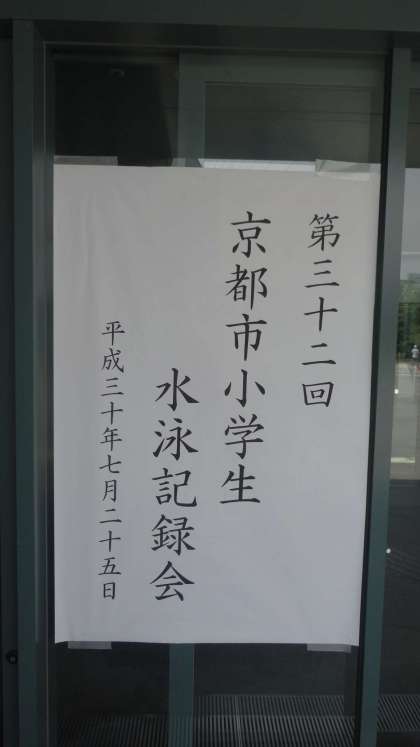 第三十二回
京都市小学生
水泳記録会
平成三十年七月二十五日